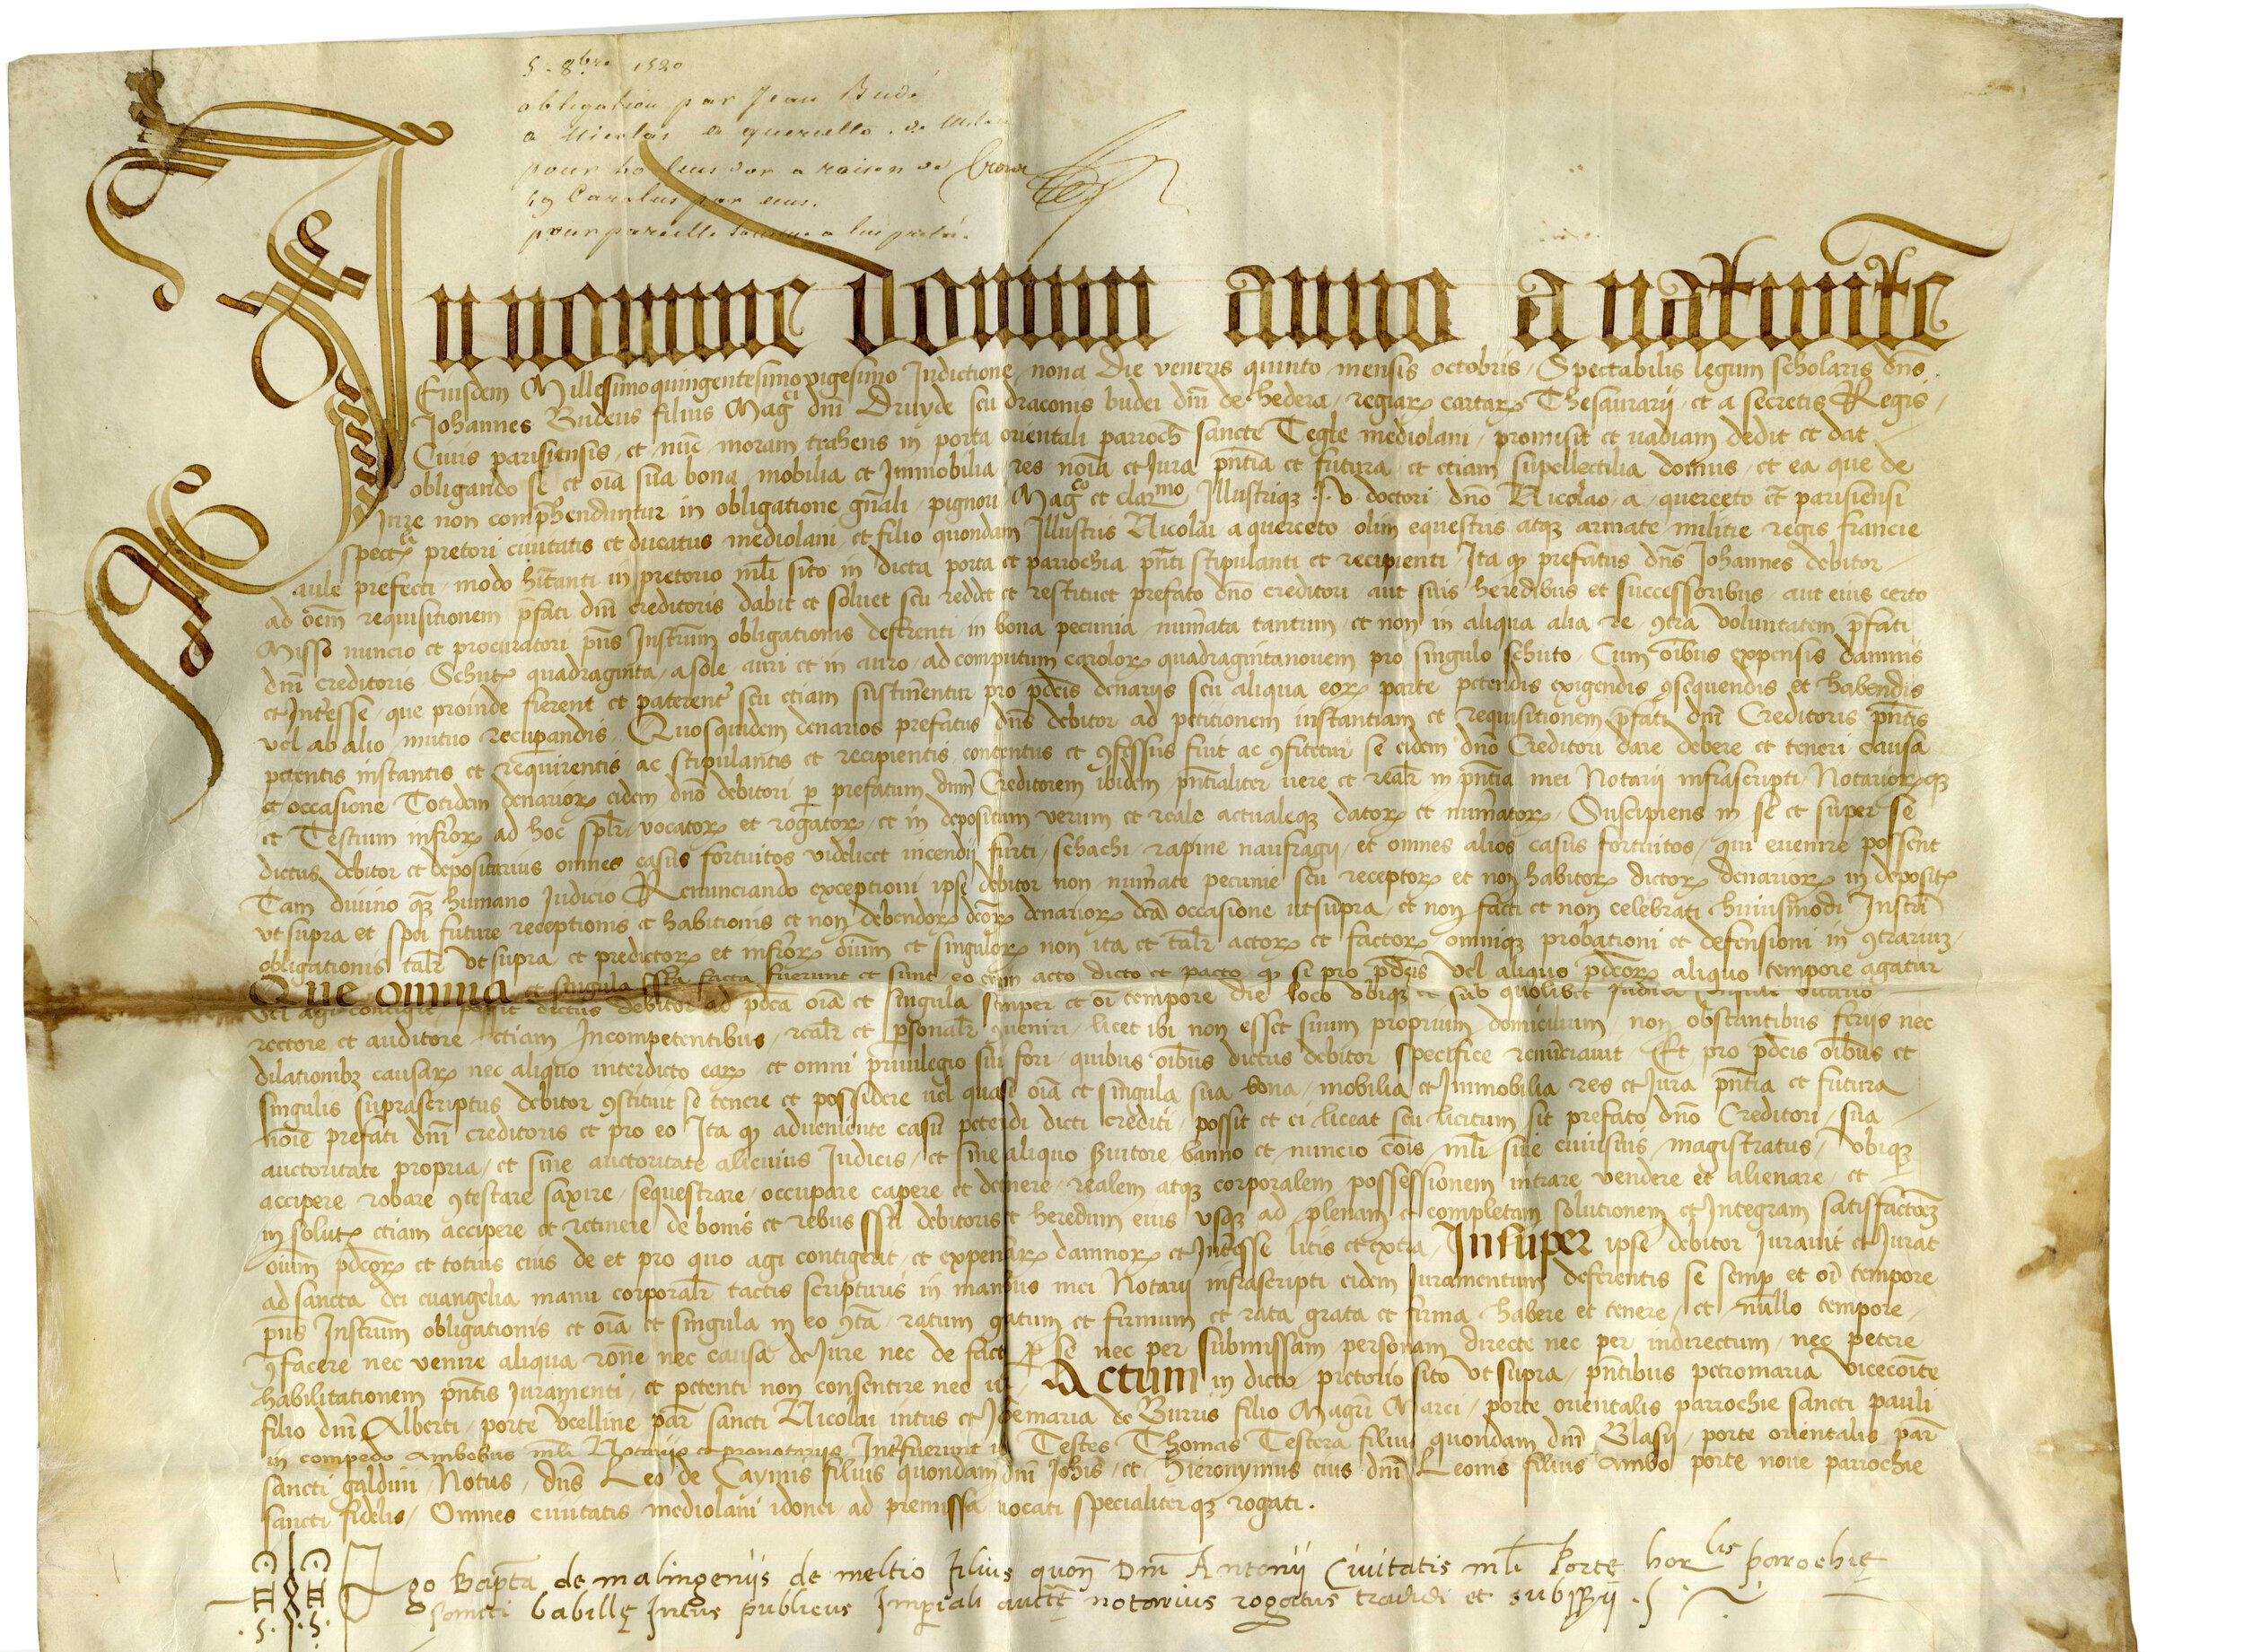 5. 8bre 1520
obligation par Jean Budé
a Nicolas a querceto de Milan
pour 40 Ecus d'or a raison de
49 Carolus par ecus.
pour pareille somme a lui pretée.
In nomine domini anno a natiuite
Eiusdem Millesimoquingentesimo vigesimo Indictione nona Die veneris quinto mensis octobris / Spectabilis legum scholaris dns
Johannes Budeus filius Magci dni Druyde seu draconis budei dni de hedera / regiar cartar Thesaurarij et a secretis Regis /
Ciuis parisiensis et nuc moram trahens in porta orientali parroch sancte Tegle mediolani / promisit et uadiam dedit et dat
obligando se et oia sua bona mobilia et Immobilia res noia et Jura pntia et futura et etiam supellectilia domus et ea que de
Jure non comprehenduntur in obligatione gnali / pignori Magco et clarmo Illustriq J. v. doctori dno Nicolao a querceto et parisiensi
spectli pretori ciuitatis et ducatus mediolani et filio quondam Illustris Nicolai a querceto olim equestris atq armate militie regis francie
aule prefecti / modo hitanti in pretorio mli sito in dicta porta et parrochia pnti stipulanti et recipienti Ita q prefatus dns Johannes debitor
ad oem requisitionem pfati dni creditoris dabit et soluet seu reddet et restituet prefato dno creditori aut suis heredibus et successoribus aut eius certo
Misso nuncio et procuratori pns Instrum obligationis deferenti in bona pecunia numerata tantum et non in aliqua alia re 9tra voluntatem pfati
dni creditoris Schut quadraginta a sole auri et in auro ad computum carolor quadragintanouem pro singulo schuto Cum oibus expensis damnis
et Interesse que proinde fierent et paterent seu etiam sustinentur pro pdcis denarijs seu aliqua eor parte petendis exigendis 9sequendis et habendis
vel ab alio mutuo recuperandis Quosquidem denarios prefatus dns debitor ad petitionem instantiam et requisitionem pfati dni Creditoris pntis
petentis instantis et requirentis ac stipulantis et recipientis contentus et 9fessus fuit ac 9fitetur se eidem dno Creditori dare debere et teneri causa
et occasione Totidem denarior eidem dno debitori p prefatum dnm Creditorem ibidem pntialiter uere et realr in pntia mei Notarij infrascripti Notariorq
et Testium infror ad hoc splr vocator et rogator et in depositum verum et reale actualeq dator et numerator Suscipiens in se et super se
dictus debitor et depositarius omnes casus fortuitos videlicet incendij furti schachi rapine naufragij et omnes alios casus fortuitos qui euenire possent
Tam diuino q humano Judicio Renunciando exceptioni ipse debitor non numerate pecunie seu receptor et non habitor dictor denarior in deposit
vt supra et spei future receptionis et habitionis et non debendor dcor denarior dca occasione ut supra et non facti et non celebrati huiusmodi Instri
obligationis talr vt supra et predictor et infror oium et singulor non ita et talr actor et factor omniq probationi et defensioni in 9trarium
Que omnia et singula ssta facta fuerunt et sunt eo etiam acto dicto et pacto q si pro pdcis vel aliquo pdcor aliquo tempore agatur
vel agi contigit possit dictus debitor ad pdca oia et singula semper et oi tempore die loco vbiq et sub quolibet Judice Consule vicario
rectore et auditore etiam Incompetentibus realr et psonalr 9ueniri licet ibi non esset suum proprium domicilium non obstantibus ferijs nec
dilationib causar nec aliquo interdicto ear et omni priuilegio sui fori quibus oibus dictus debitor specifice renunciauit Et pro pdcis oibus et
singulis suprascriptus debitor 9stituit se tenere et possidere uel quasi oia et singula sua bona mobilia et Immobilia res et Jura pntia et futura
noie prefati dni creditoris et pro eo Ita q adueniente casu petendi dicti crediti possit et ei liceat seu licitum sit prefato dno Creditori sua
auctoritate propria et sine auctoritate alicuius Judicis et sine aliquo Seruitore banno et nuncio cois mli siue cuiusuis magistratus vbiq
accipere robare 9testare saxire sequestrare occupare capere et detinere realem atq corporalem possessionem intrare vendere et alienare et
in solut etiam accipere et retinere de bonis et rebus ssti debitoris et heredum eius vsq ad plenam et completam solutionem et Integram satisfactoem
oium pdcor et totius eius de et pro quo agi contigerit et expensar damnor et Interesse litis et extra Insuper ipse debitor Jurauit et Jurat
ad sancta dei euangelia manu corporalr tactis scripturis in manibus mei Notarij infrascripti eidem Juramentum deferentis se semp et oi tempore
pns Instrum obligationis et oia et singula in eo 9tta ratum gratum et firmum et rata grata et firma habere et tenere et nullo tempore
9facere nec venire aliqua rone nec causa de Jure nec de facto p se nec per submissam personam directe nec per indirectum nec petere
habilitationem pntis Juramenti et petenti non consentire nec uti / Actum in dicto pretorio sito vt supra pntibus petromaria vicecoite
filio dni Alberti porte vcelline par sancti Nicolai intus et Joemaria de Burris filio Magri Marci porte orientalis parrochie sancti pauli
in compedo ambobus mli Notarijs et pronotarijs Interfuerunt ibi Testes Thomas Testera filius quondam dni Blasij porte orientalis par
sancti galdini Notus / dns Leo de Caymis filius quondam dni Johis et Hieronymus eius dni Leonis filius ambo porte noue parrochie
sancti fidelis / Omnes ciuitatis mediolani idonei ad premissa uocati specialiterq rogati .
Ego Bapta de malingenijs de meltio filius quon Dni Antonij Ciuitatis mli Porte horlis parochie
sancti babille Intus publicus Imperiali aucte notarius rogatus tradidi et subssij . S